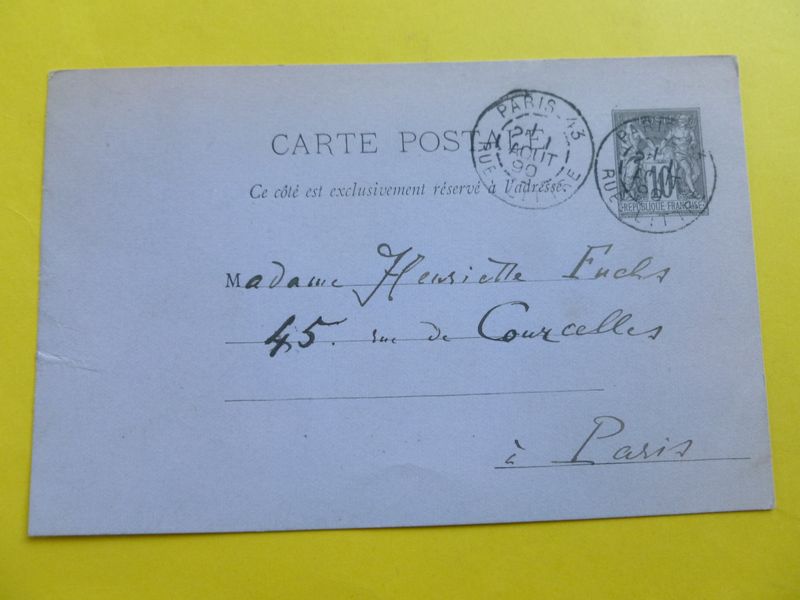 CARTE POST
Ce côté est exclusivement réservé à l'adresse.
PARIS-43
AOUT
90
RUE
PARIS
10
RUE
REPUBLIQUE FRANÇAISE
Madame Henriette Fuchs
45. rue de Courcelles
à Paris